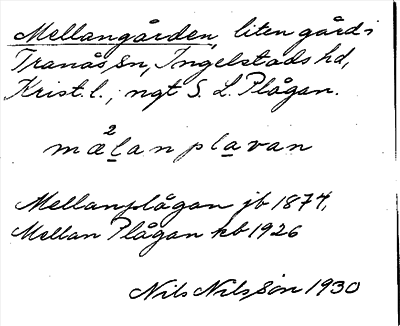 Mellangården, liten gård i
Tranås sn, Ingelstads hd,
Krist. l.; ngt S. L. Plågan.
2
mæḻan pla̱van
Mellanplågan jb 1874,
Mellan Plågan kb 1926
Nils Nilsson 1930